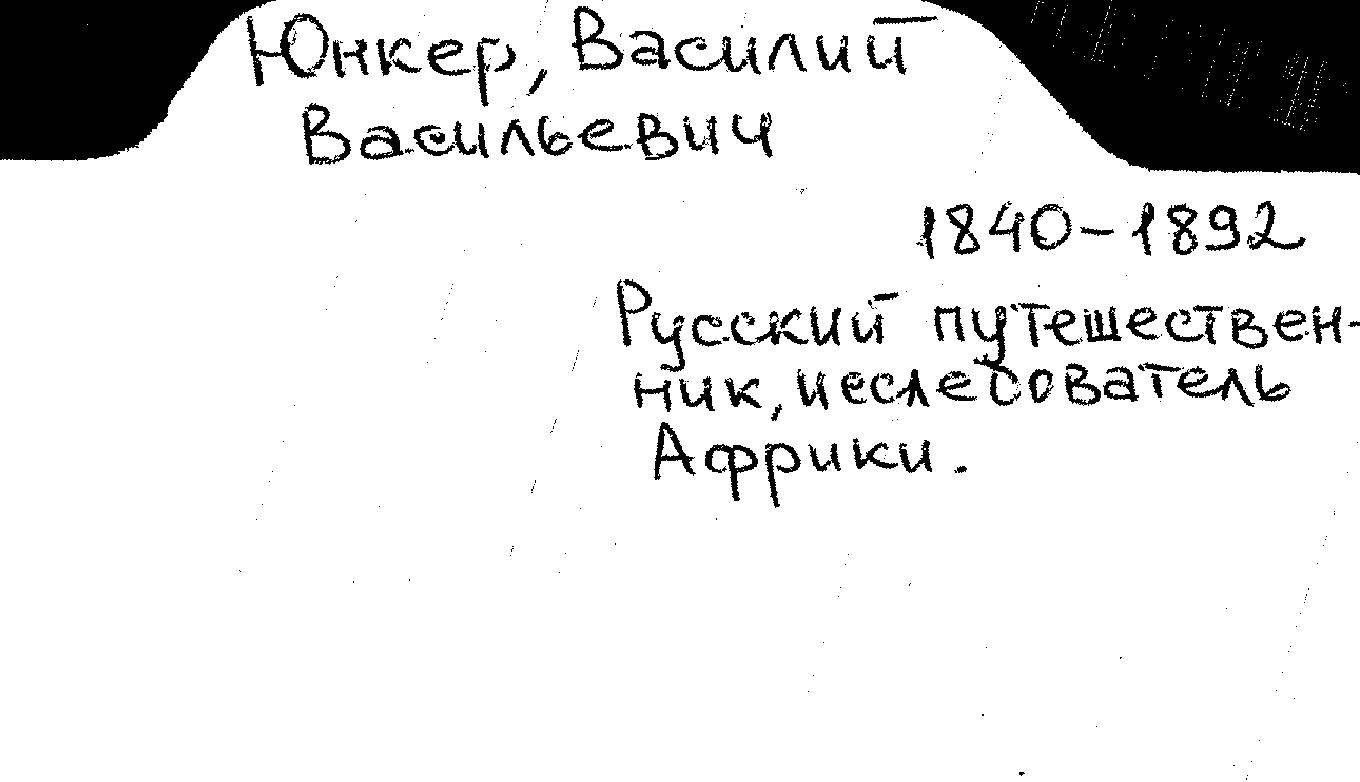 Юнкер, Василий
Васильевич
1840-1892
Русский путешествен-
ник, исследователь
Африки.